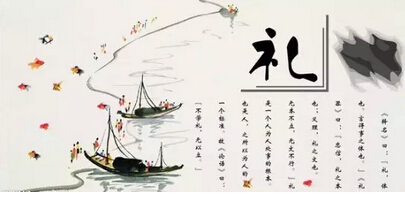 礼
《释名》曰:「礼,体
也。言得事之体也。」《礼
器》曰:「忠信,礼之本
也;义理,礼之文也。
无本不立,无文不行。」礼
是一个人为人处事的根本。
也是人,之所以为人的
一个标准。故《论语》曰:
「不学礼,无以立。」